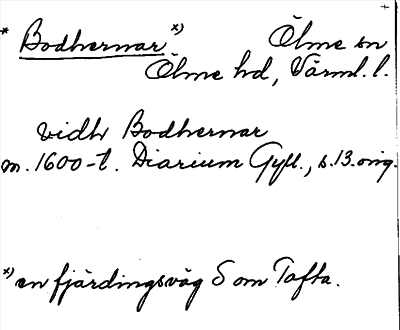 * Bodhernar x) Ölme sn
Ölme hd, Värml. l.
vidh Bodhernar
m. 1600-t. Diarium Gyll., s. 13. orig.
x) en fjärdingsväg S om Tafta.